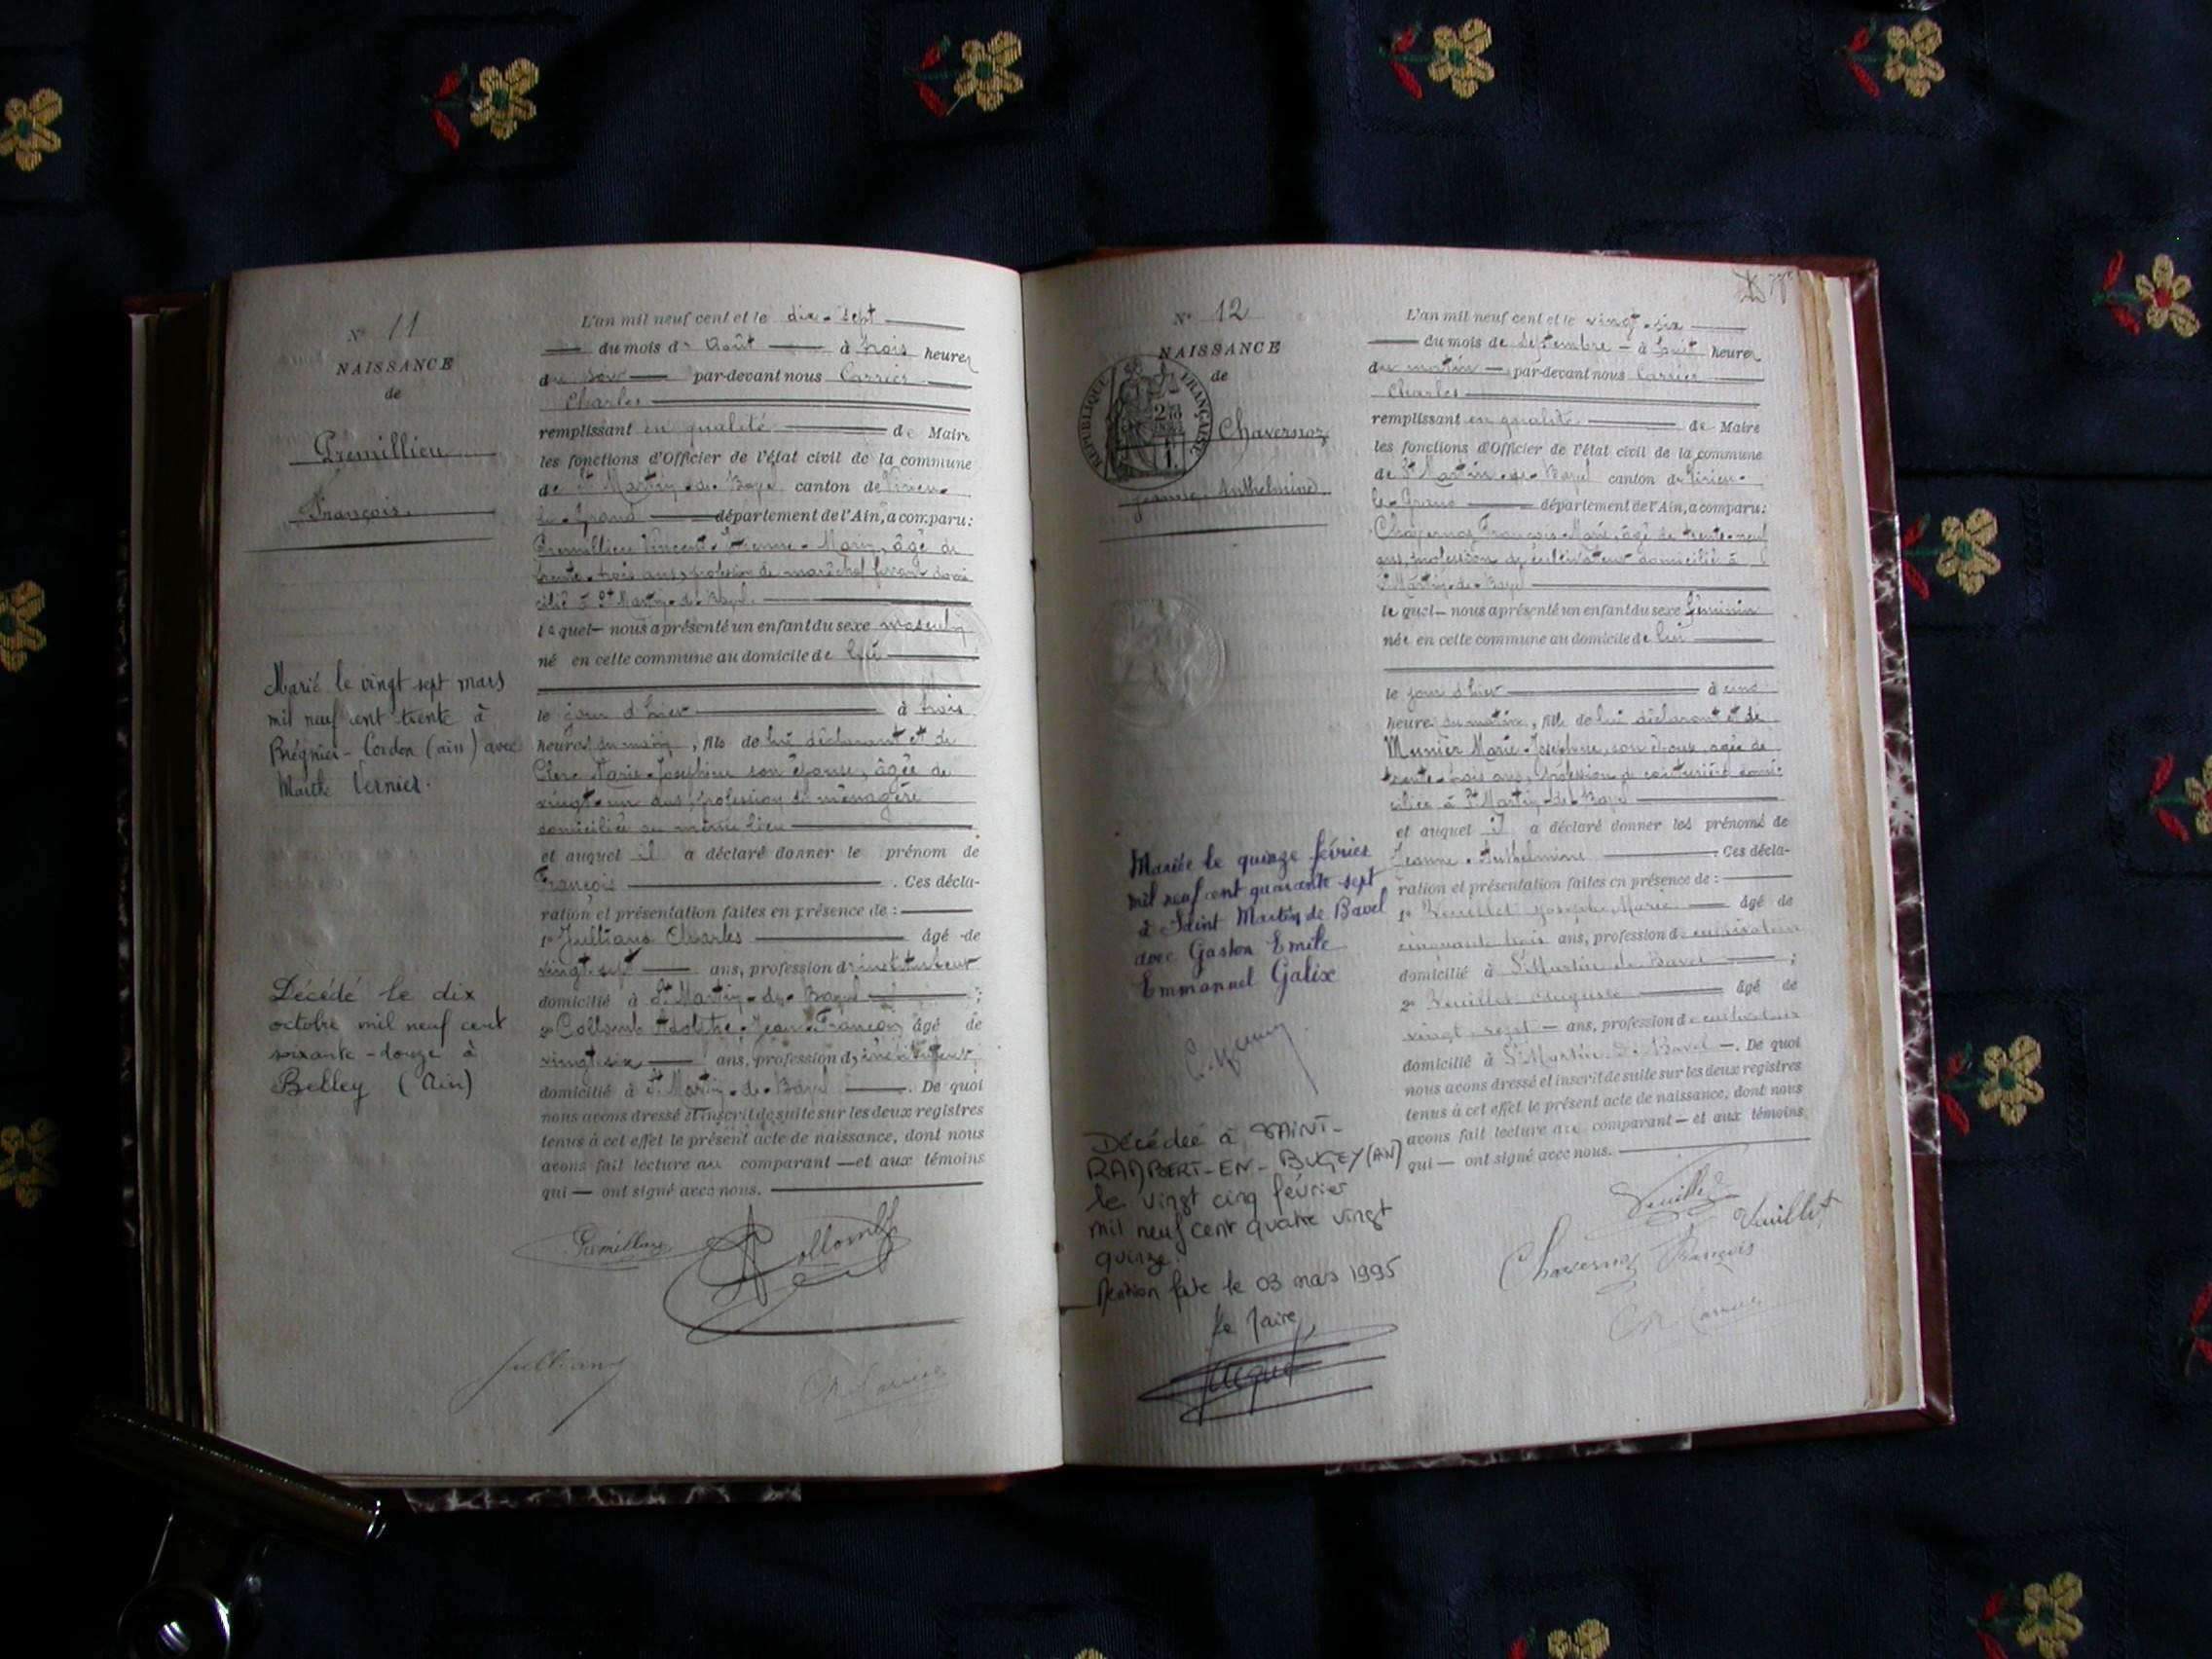 N° 11
NAISSANCE
de
Premillieu
François.
Marié le vingt sept mars
mil neuf cent trente à
Brégnier-Cordon (ain) avec
Marthe Vernier.
Décédé le dix
octobre mil neuf cent
soixante-douze à
Belley (Ain)
L'an mil neuf cent et le dix-sept
du mois de Août à trois heures
du soir par-devant nous Carrier
Charles
remplissant en qualité de Maire
les fonctions d'Officier de l'état civil de la commune
de St Martin-de-Bavel canton de Virieu-
le-Grand département de l'Ain, a comparu:
Premillieu Vincent-Etienne-Marin, âgé de
trente-trois ans, profession de maréchal ferrant domi
cilié à St Martin-de-Bavel.
lequel nous a présenté un enfant du sexe masculin
né en cette commune au domicile de lui
le jour d'hier à trois
heures du matin, fils de lui déclarant et de
Clerc Marie-Joséphine son épouse, âgée de
vingt-un ans, profession de ménagère
domiciliée au même lieu
et auquel il a déclaré donner le prénom de
François. Ces décla-
ration et présentation faites en présence de :
1° Julliano Charles âgé de
vingt-sept ans, profession d'instituteur
domicilié à St Martin-de-Bavel ;
2° Collomb Adolphe-Jean-François âgé de
vingt-six ans, profession d'instituteur
domicilié à St Martin-de-Bavel. De quoi
nous avons dressé et inscrit de suite sur les deux registres
tenus à cet effet le présent acte de naissance, dont nous
avons fait lecture au comparant et aux témoins
qui ont signé avec nous.
Premillieu Collomb
Julliano Ch Carrier
N° 12
NAISSANCE
de
RÉPUBLIQUE FRANÇAISE
Chavernoz
Jeanne Anthelmine
Mariée le quinze février
mil neuf cent quarante-sept
à Saint Martin de Bavel
avec Gaston Emile
Emmanuel Galix
Décédée à SAINT-
RAMBERT-EN-BUGEY (AIN)
le vingt cinq février
mil neuf cent quatre vingt
quinze.
Mention faite le 03 mars 1995
Le Maire,
L'an mil neuf cent et le vingt-six
du mois de septembre à huit heures
du matin par-devant nous Carrier
Charles
remplissant en qualité de Maire
les fonctions d'Officier de l'état civil de la commune
de St Martin-de-Bavel canton de Virieu-
le-Grand département de l'Ain, a comparu:
Chavernoz François-Marie, âgé de trente-neuf
ans, profession de cultivateur domicilié à
St Martin-de-Bavel
lequel nous a présenté un enfant du sexe féminin
née en cette commune au domicile de lui
le jour d'hier à cinq
heures du matin, fille de lui déclarant et de
Munier Marie-Joséphine, son épouse, âgée de
trente-trois ans, profession de couturière domi-
ciliée à St Martin-de-Bavel
et auquel il a déclaré donner les prénoms de
Jeanne-Anthelmine. Ces décla-
ration et présentation faites en présence de :
1° Veuillet Joseph-Marie âgé de
cinquante trois ans, profession de cultivateur
domicilié à St Martin de Bavel ;
2° Veuillet Auguste âgé de
vingt-sept ans, profession de cultivateur
domicilié à St Martin de Bavel. De quoi
nous avons dressé et inscrit de suite sur les deux registres
tenus à cet effet le présent acte de naissance, dont nous
avons fait lecture au comparant et aux témoins
qui ont signé avec nous.
Veuillet
Veuillet
Chavernoz François
Ch Carrier